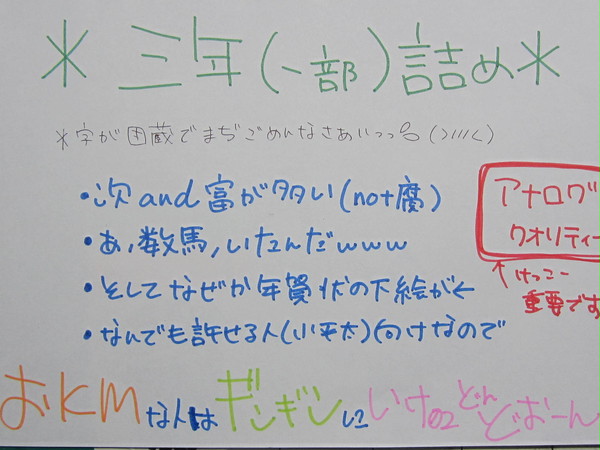 ＊三年(一部)詰め＊
＊字が困蔵でまぢごめんなさあいっっ(>///<)
・次and富が多い(not腐)
・あ、数馬、いたんだwww
・そしてなぜか年賀状の下絵がく
・なんでも許せる人(小平太)向けなので
アナログ
クオリティー
↑けっこー
重要です
おKMな人はギンギンにいけどんどおーん